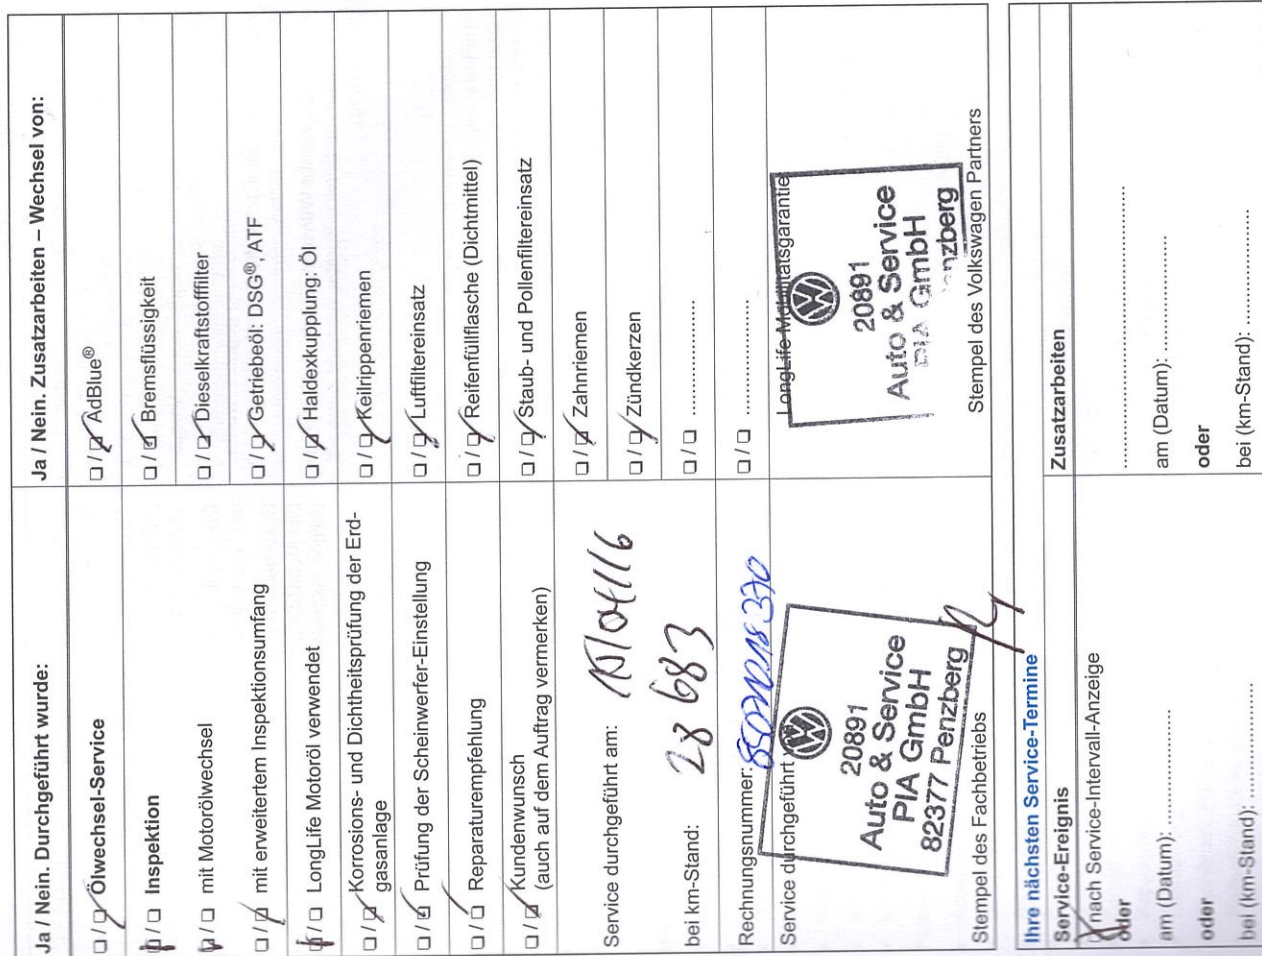 Ja / Nein. Durchgeführt wurde:
☐ / ☑ Ölwechsel-Service
☑ / ☐ Inspektion
☑ / ☐ mit Motorölwechsel
☐ / ☑ mit erweitertem Inspektionsumfang
☑ / ☐ LongLife Motoröl verwendet
☐ / ☑ Korrosions- und Dichtheitsprüfung der Erd-
gasanlage
☐ / ☑ Prüfung der Scheinwerfer-Einstellung
☐ / ☑ Reparaturempfehlung
☐ / ☑ Kundenwunsch
(auch auf dem Auftrag vermerken)
Service durchgeführt am:
bei km-Stand: 28 683
Rechnungsnummer:
Service durchgeführt
20891
Auto & Service
PIA GmbH
82377 Penzberg
Stempel des Fachbetriebs
Ja / Nein. Zusatzarbeiten – Wechsel von:
☐ / ☑ AdBlue®
☐ / ☑ Bremsflüssigkeit
☐ / ☑ Dieselkraftstofffilter
☐ / ☑ Getriebeöl: DSG®, ATF
☐ / ☑ Haldexkupplung: Öl
☐ / ☑ Keilrippenriemen
☐ / ☑ Luftfiltereinsatz
☐ / ☑ Reifenfüllflasche (Dichtmittel)
☐ / ☑ Staub- und Pollenfiltereinsatz
☐ / ☑ Zahnriemen
☐ / ☑ Zündkerzen
☐ / ☐ ....................
☐ / ☐ ....................
LongLife Mobilitätsgarantie
20891
Auto & Service
PIA GmbH
Penzberg
Stempel des Volkswagen Partners
Ihre nächsten Service-Termine
Service-Ereignis
☑ nach Service-Intervall-Anzeige
oder
am (Datum): ....................
oder
bei (km-Stand): ....................
Zusatzarbeiten
........................................
am (Datum): ....................
oder
bei (km-Stand): ....................